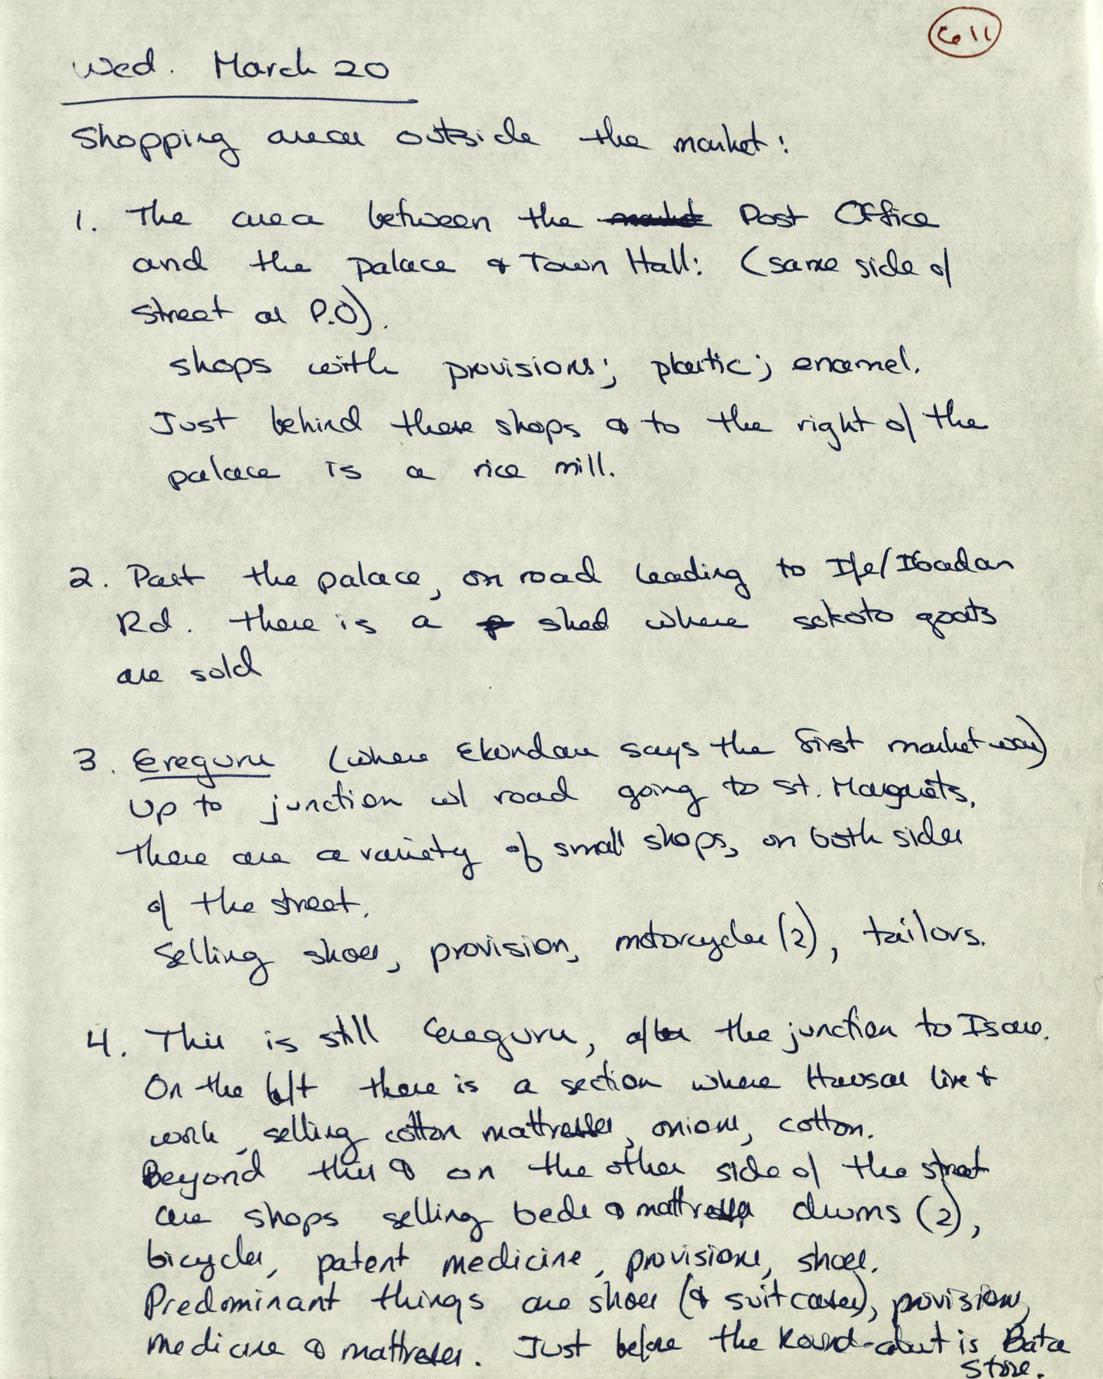 611
Wed. March 20
Shopping areas outside the market:
1. The area between the market Post Office
and the palace & Town Hall: (same side of
street as P.O).
shops with provisions; plastic; enamel.
Just behind these shops & to the right of the
palace is a rice mill.
2. Past the palace, on road leading to Ife/Ibadan
Rd. there is a shed where sokoto goats
are sold
3. Ereguru (where Ekundau says the first market was)
Up to junction w/ road going to St. Margrets,
there are a variety of small shops, on both sides
of the street.
Selling shoes, provision, motorcycles (2), tailors.
4. This is still Ereguru, after the junction to Isare.
On the left there is a section where Hausas live &
work, selling cotton mattresses, onions, cotton.
Beyond this & on the other side of the street
are shops selling beds & mattresses drums (2),
bicycles, patent medicine, provisions, shoes.
Predominant things are shoes (& suitcases), provisions,
medicine & mattresses. Just before the Round-about is Bata
store.